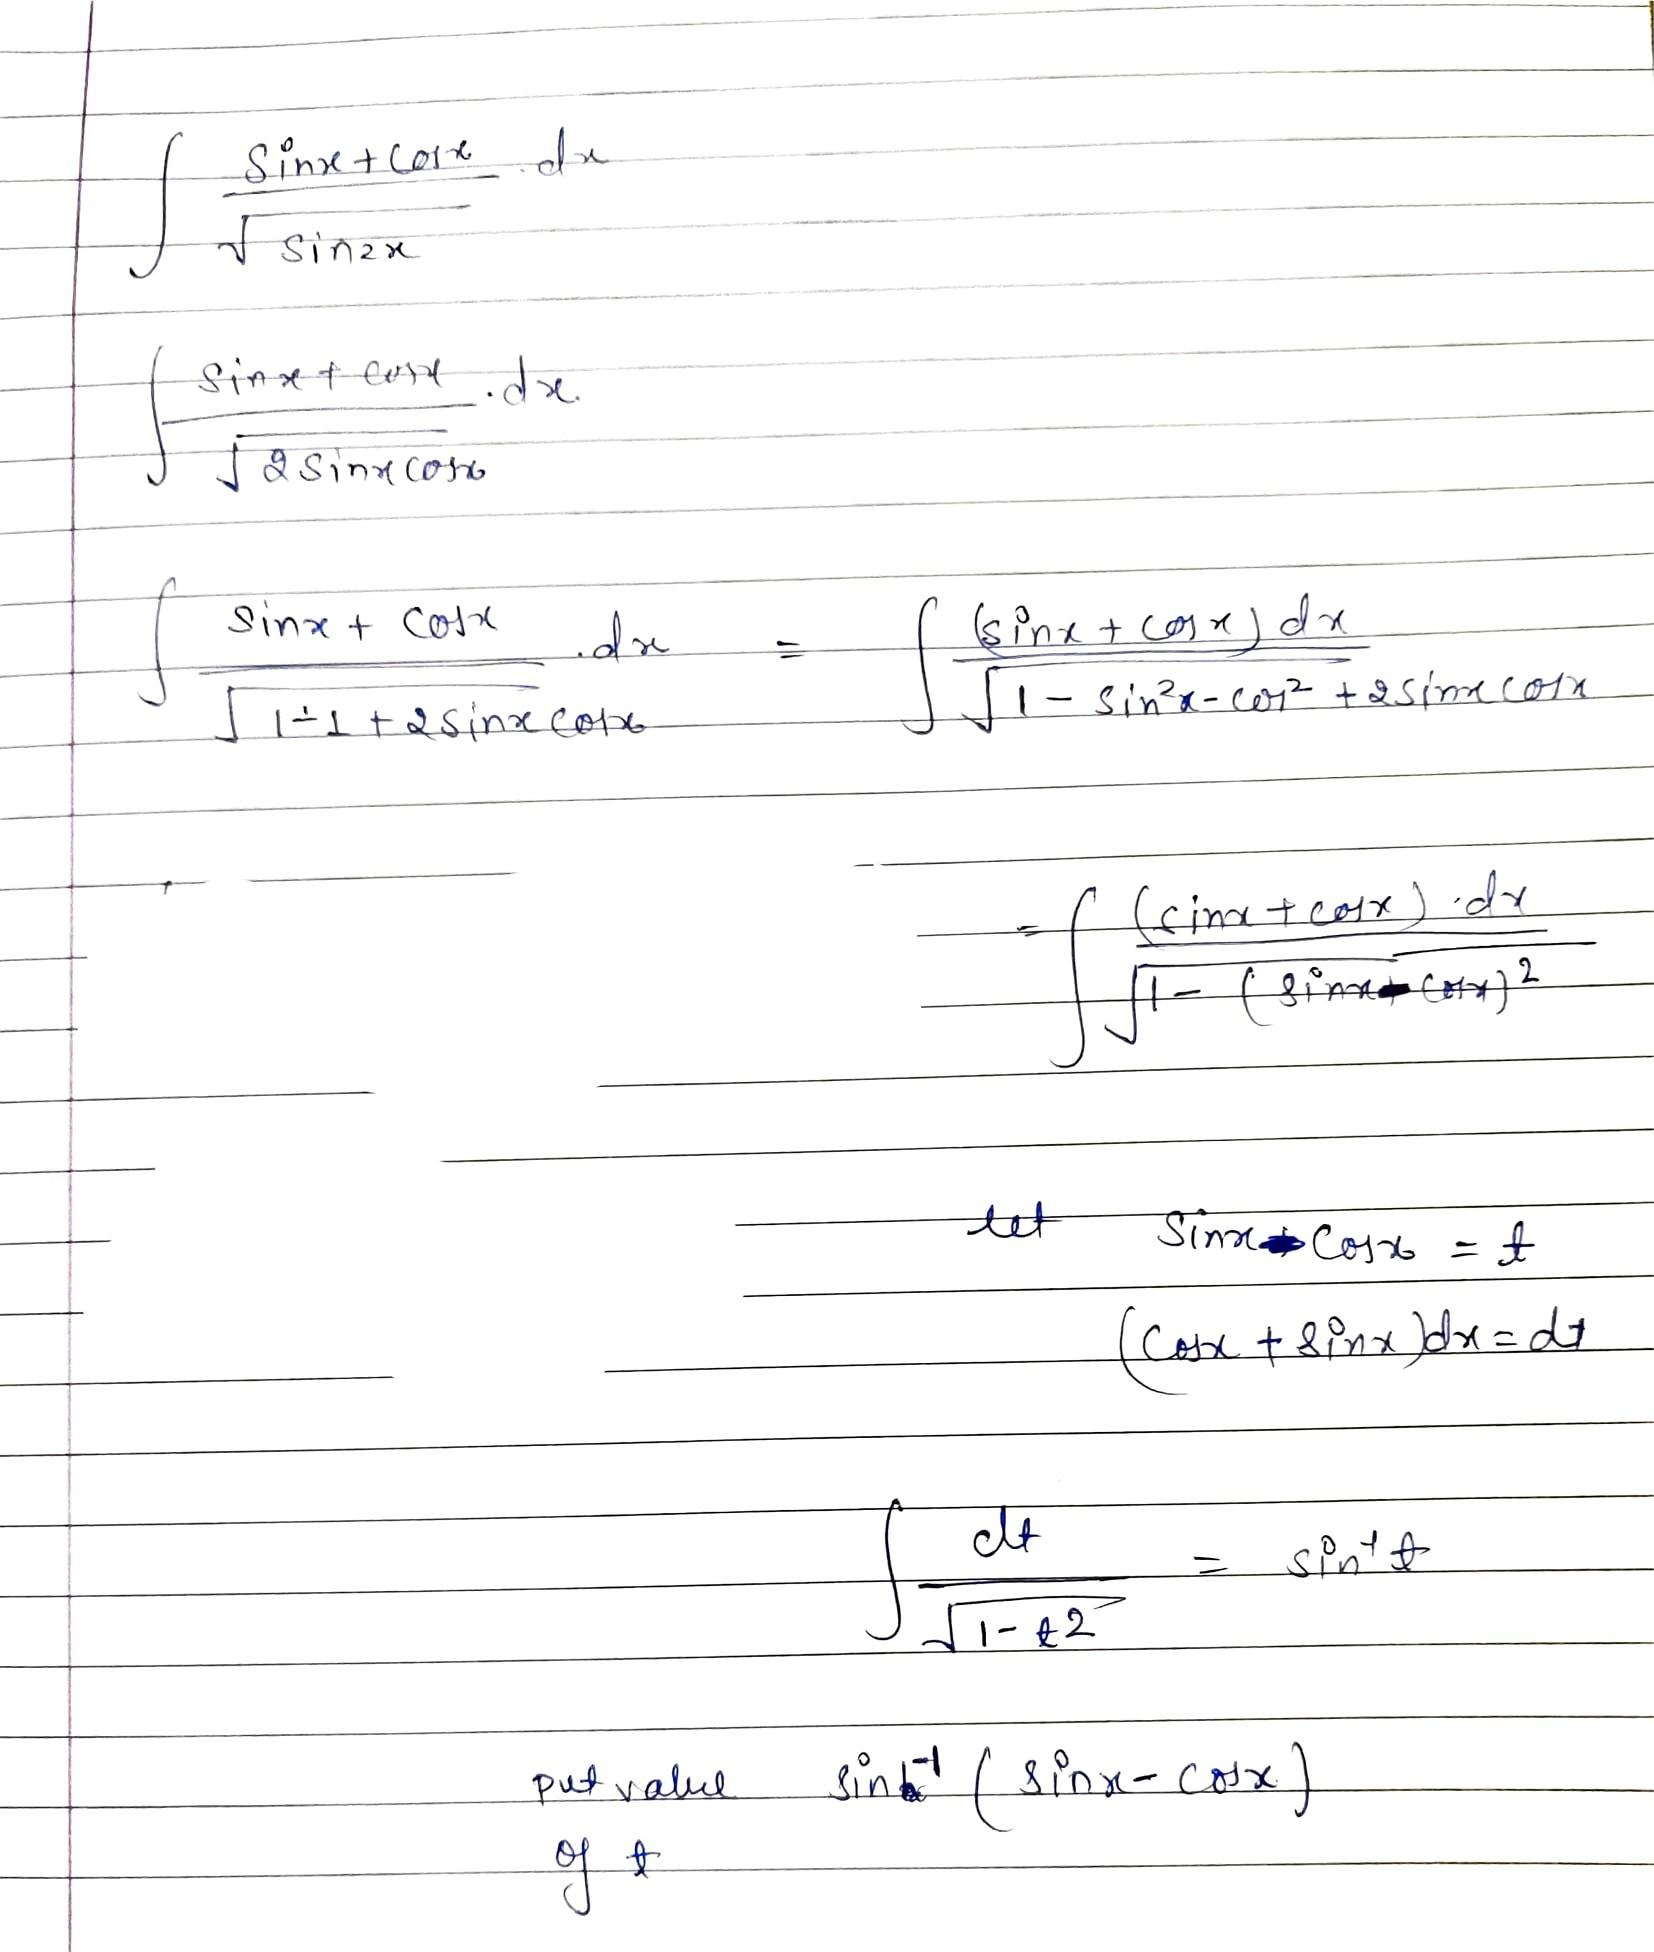 ∫ (sinx + cosx)/√(sin2x) . dx
∫ (sinx + cosx)/√(2sinxcosx) . dx.
∫ (sinx + cosx)/√(1-1+2sinxcosx) .dx = ∫ (sinx + cosx)dx/√(1 - sin²x - cos² + 2sinxcosx)
= ∫ (sinx + cosx).dx/√(1 - (sinx - cosx)²)
let sinx - cosx = t
(cosx + sinx)dx = dt
∫ dt/√(1-t2) = sin⁻¹ t
put value sin⁻¹ (sinx - cosx)
of t